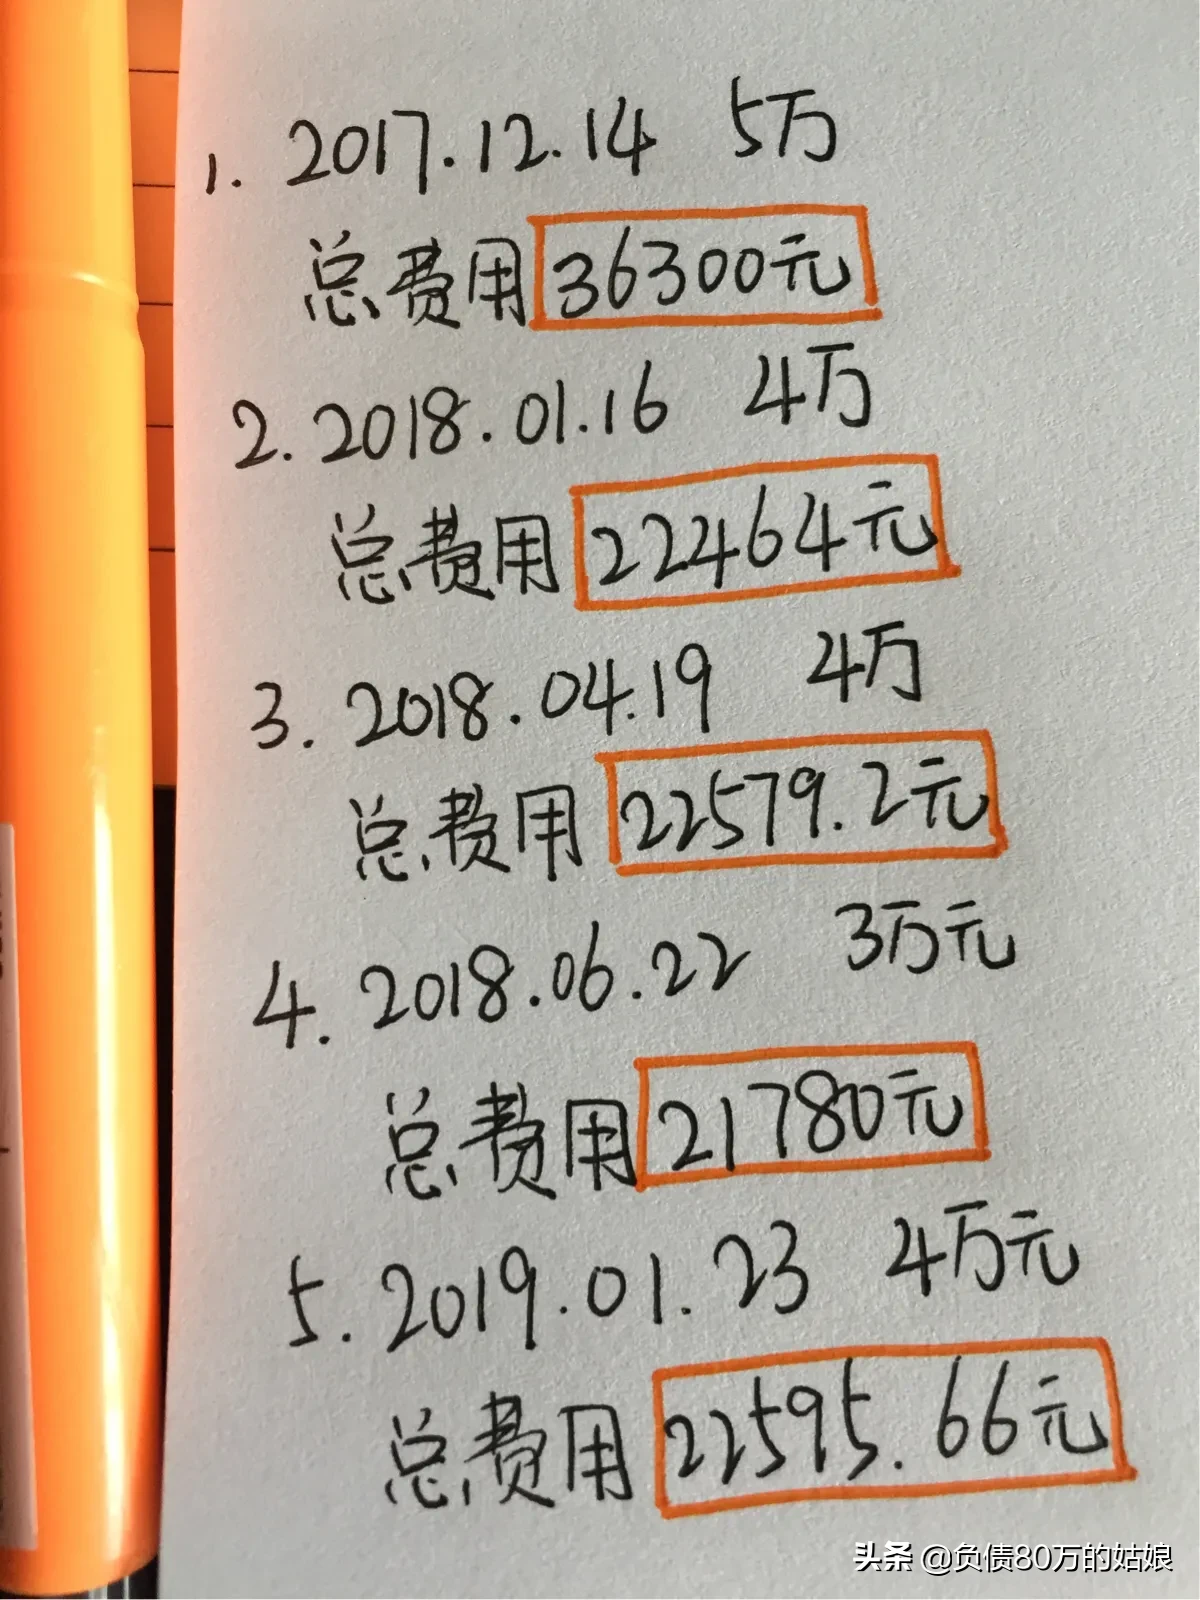 1. 2017.12.14 5万
总费用 36300元
2. 2018.01.16 4万
总费用 22464元
3. 2018.04.19 4万
总费用 22579.2元
4. 2018.06.22 3万元
总费用 21780元
5. 2019.01.23 4万元
总费用 22595.66元
头条 @负债80万的姑娘